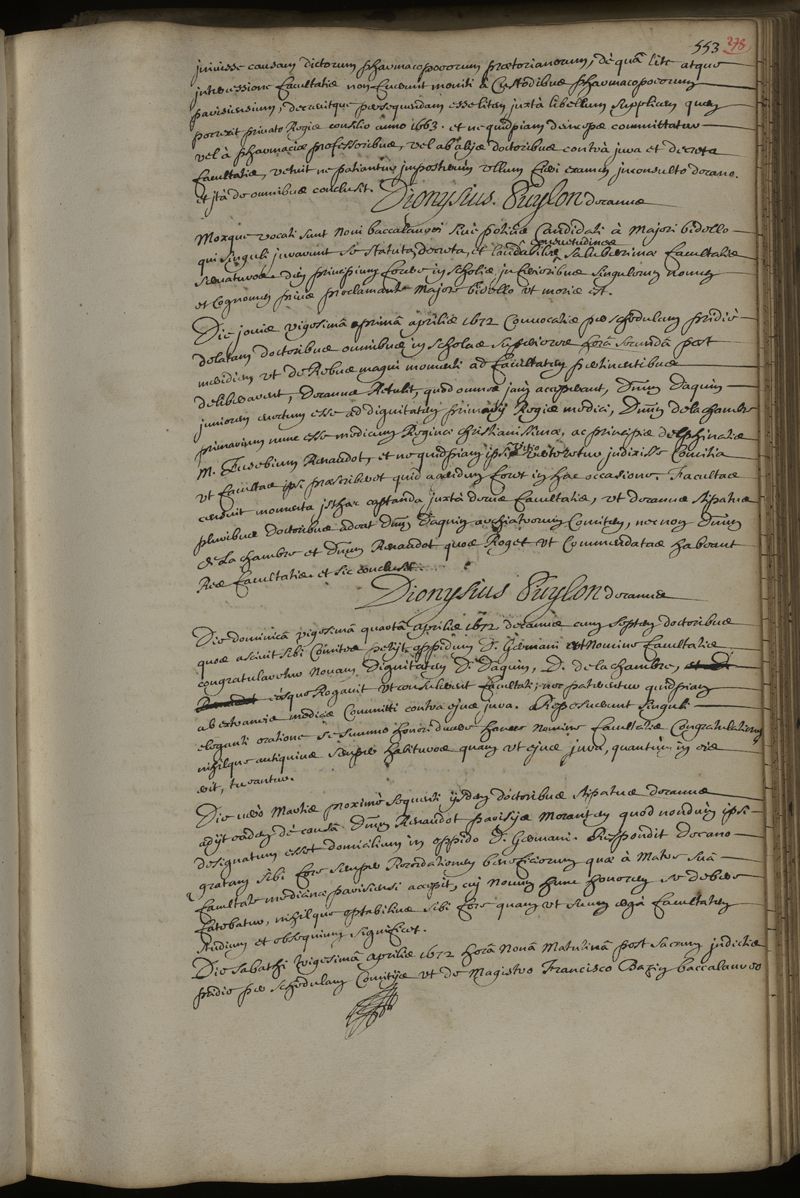 553 278
iniisse causam dictorum pharmacopoeorum praetorianorum, dè quâ lite atque
intercessione facultatis non fuerunt moniti à Custodibus pharmacopoeorum
parisiensium, decrevitque persequendam esse litem juxtà libellum supplicem quem
porrexit privato Regis consilio anno 1663. et ne quidpiam deinceps committatur
vel à pharmaciae professoribus, vel ab alijs doctoribus contrà jura et decreta
facultatis, vetuit ne patiantur jmposterum ullum fieri examen jnconsulto decano.
et jtà de omnibus conclusit. Dionysius Puylon decanus
Moxque vocati sunt novi baccalaurei sivè politices Candidati à Majori bidello
qui singuli jurarunt se statuta, decreta, et laudabiles consuetudines Saluberrimae facultatis
servaturos. dein principium fores in scholis jnferioribus singulorum nomen
et Cognomen priùs proclamante Majore bidello ut moris est.
Die jovis vigesimâ primâ aprilis 1672 Convocatis per schedulam pridiè
delatam doctoribus omnibus in scholas superiores horâ secundâ post
meridiem ut de Rebus magni momenti ad facultatem pertinentibus
deliberarent, Decanus Retulit, quod omnes jam acceperant, Dnum Daquin
juniorem evectum esse ad dignitatem primarij Regis medici, Dnum de la chambre
primarium nunc esse medicum Reginae christianissimae, ac principis delphinatis
M. Eusebium Renandot, et ne quidpiam ipsi verteretur judicisse Comitia
ut facultas ipsi praescriberet quid agendum foret in hac occasione. Facultas
censuit momenta isthaec captanda juxtà decus facultatis, ut decanus stipatus
pluribus doctoribus adeat Dnum Daquin archiatrorum Comitem, nec non Dnum
de la chambre et Dnum Renandot quos Roget ut Commendatas habeant
Res facultatis. et sic conclusit.
Dionysius Puylon decanus
Die dominicâ vigesimâ quartâ aprilis 1672 decanus cum septem doctoribus
quos ascivit sibi Comites petijt oppidum D. Germani ut Nomine facultatis
congratularetur Novam Dignitatem D. Daquin, D. de la chambre, et D.
Renandot eosque Rogavit ut consulerent facultati; nec paterentur quidpiam
ab extraneis medicis Committi contrà ejus jura. Reposuerunt singuli
eleganti oratione se summo honori ducere hanc Nomine facultatis Congratulationem
nihilque antiquius semper habituros quam ut ejus jura, quantum in eis
erit, tueantur.
Die verò Martis proximè sequenti ijsdem doctoribus stipatus decanus
adijt eadem de causâ Dnum Renandot parisijs morantem quod nondum ipsi
designatum esset domicilium in oppido D. Germani. Respondit Decano
gratam sibi fore semper Recordationem beneficiorum quae à Matre suâ
facultate medicinae parisiensi accepit, cuj Nomen hunc honorem se debere
fatebatur, nihilque optabilius sibi fore quam ut suum ergà facultatem
studium et obsequium significet.
Die sabathi vigesimâ aprilis 1672 horâ Nonâ Matutinâ post sacrum jndictis
pridie per schedulam Comitijs ut de Magistro Francisco Bazin baccalaureo